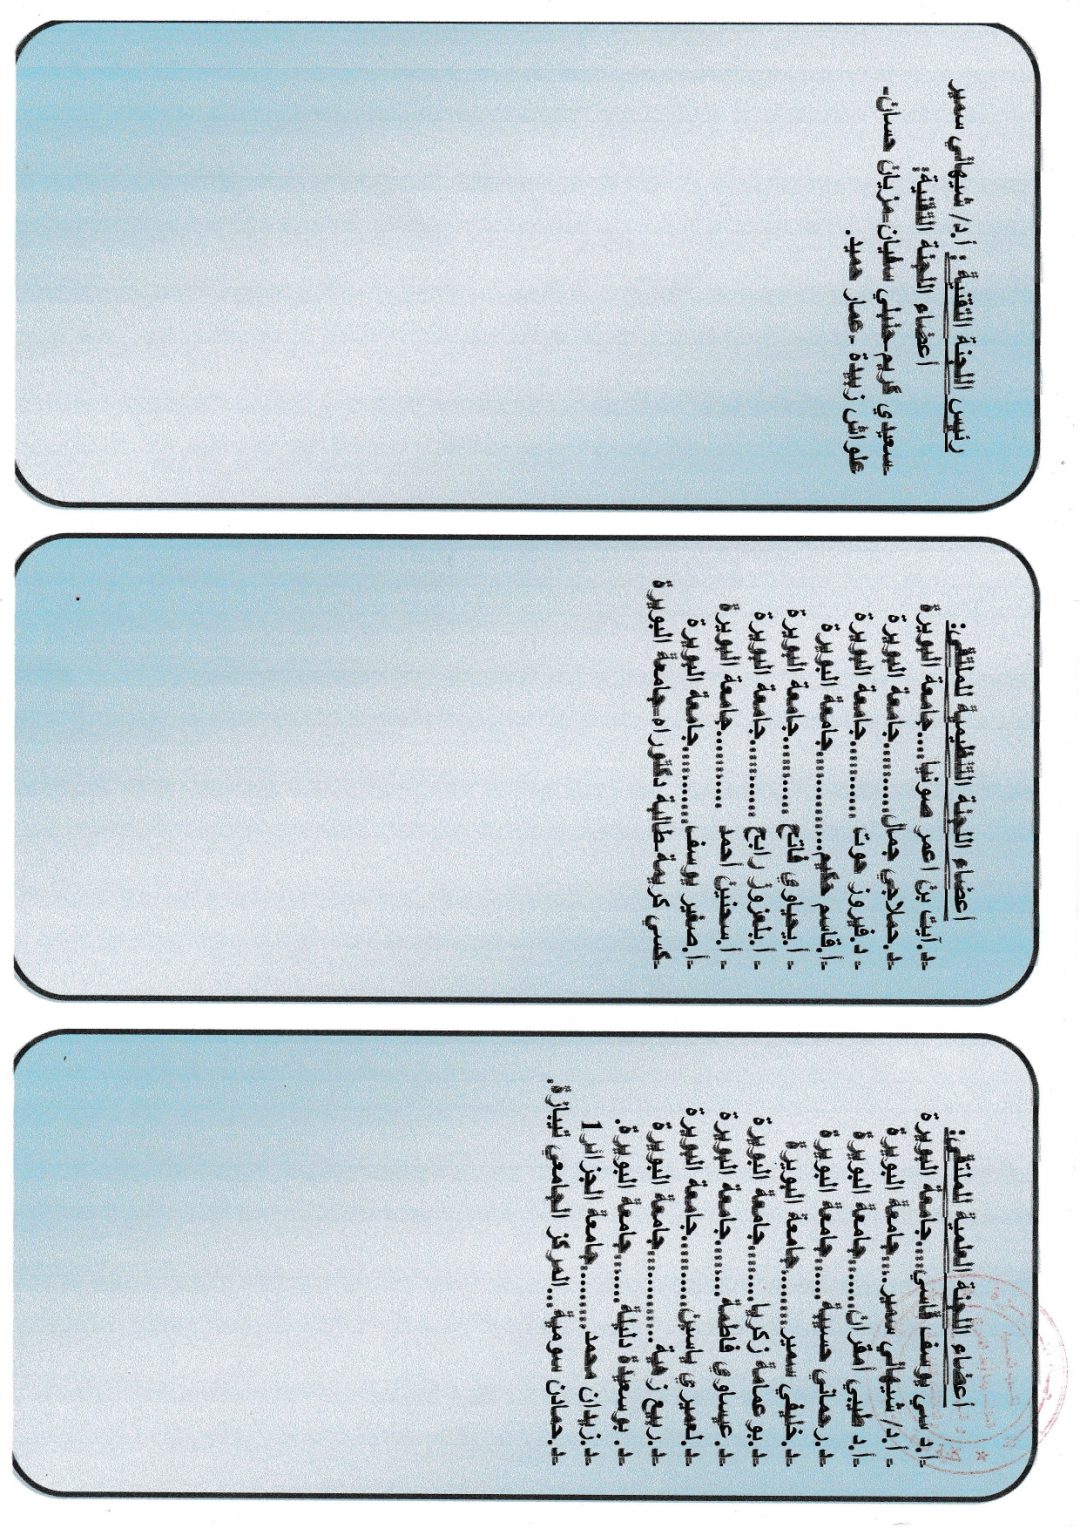 أعضاء اللجنة العلمية للملتقى:
-أ.د سي يوسف قاسي....جامعة البويرة
- أ.د/ شيهاني سمير....جامعة البويرة
-أ.د طيبي أمقران.......جامعة البويرة
-د.رحماني حسيبة......جامعة البويرة
-د.خليفي سمير.........جامعة البويرة
-د.بو عمامة زكريا......جامعة البويرة
-د.عيساوي فاطمة......جامعة البويرة
-د.لعميري ياسين........جامعة البويرة
-د.ربيع زهية............جامعة البويرة
-د. بوسعيدة دليلة.......جامعة البويرة.
-د.زيدان محمد.........جامعة الجزائر1
-د.حمادن سومية...المركز الجامعي تيبازة.
أعضاء اللجنة التنظيمية للملتقى:
-د.آيت بن اعمر صونيا....جامعة البويرة
-د.حملاجي جمال.........جامعة البويرة
- د.فيروز حوت ..........جامعة البويرة
-أ.قاسم حكيم.............جامعة البويرة
- أ.يحياوي فاتح ..........جامعة البويرة
- أ.بلعزوز رابح ..........جامعة البويرة
- أ.سحنين أحمد ..........جامعة البويرة
-أ.صغير يوسف..........جامعة البويرة
-كسي كريمة-طالبة دكتوراه-جامعة البويرة
رئيس اللجنة التقنية : أ.د/ شيهاني سمير
أعضاء اللجنة التقنية:
-سعيدي كريم-حنبلي سفيان-مزيان حسان-
علواش زبيدة -عمار حميد.